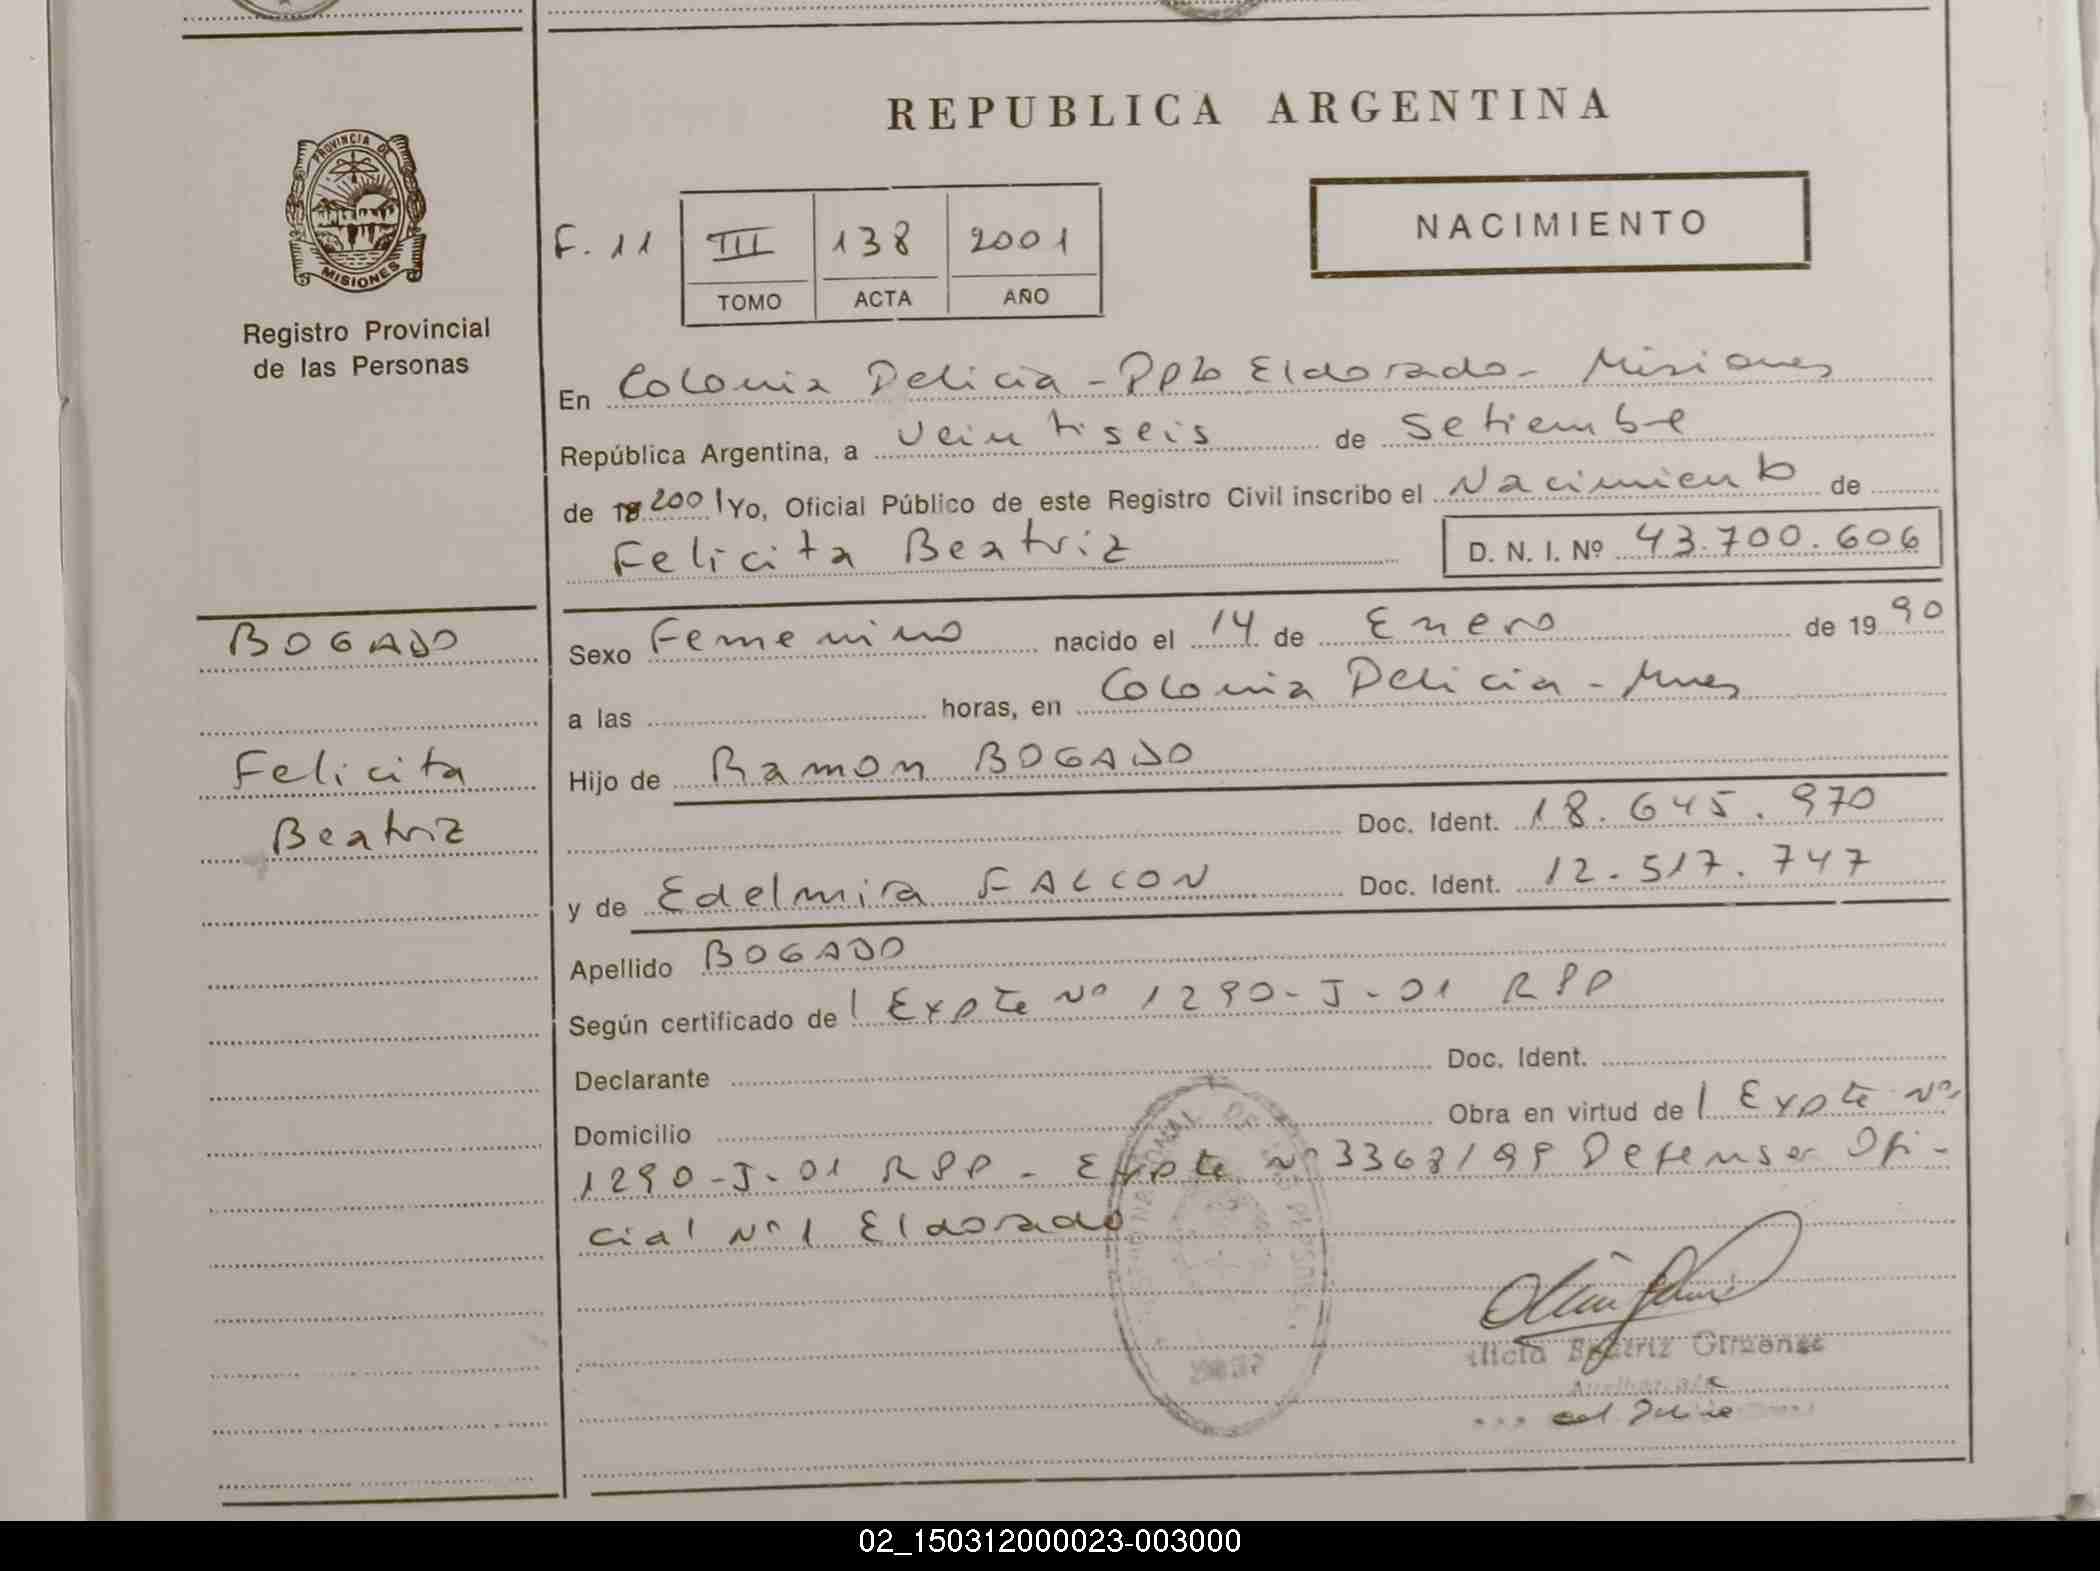 REPUBLICA ARGENTINA
PROVINCIA DE
MISIONES
Registro Provincial
de las Personas
NACIMIENTO
F. 11 III 138 2001
TOMO ACTA AÑO
En Colonia Delicia - Dpto Eldorado - Misiones
República Argentina, a veintiseis de Setiembre
de 2001 Yo, Oficial Público de este Registro Civil inscribo el Nacimiento de
Felicita Beatriz D. N. I. Nº 43.700.606
BOGADO
Felicita
Beatriz
Sexo Femenino nacido el 14 de Enero de 1990
a las horas, en Colonia Delicia - Mnes
Hijo de Ramon BOGADO
Doc. Ident. 18.645.970
y de Edelmira FALCON Doc. Ident. 12.517.747
Apellido BOGADO
Según certificado de Expte Nº 1290-J-01 RPP
Declarante Doc. Ident.
Domicilio Obra en virtud de Expte Nº
1290-J-01 RPP - Expte Nº Defensor Ofi-
cial Nº 1 Eldorado
Beatriz
02_150312000023-003000